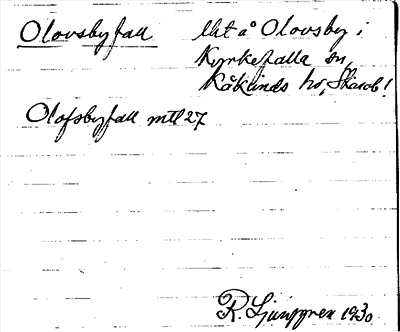 Olovsbyfall
lht å Olovsby i
Kyrkefalla sn,
Kåkinds hd, Skarab. l.
Olofsbyfall mtl 27
R. Ljunggren 1930